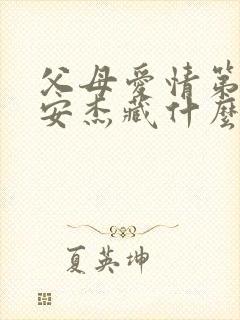 父母爱情第
安杰藏什麼
夏英坤